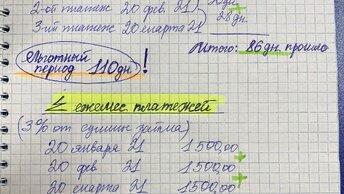 2-ой платеж 20 фев. 21
28 дн.
3-ий платеж 20 марта 21
Итого: 86 дн. прошло
Льготный
период 110 дн. !
Σ ежемес. платежей
(3% от суммы займа)
20 января 21 1500,00
+
20 фев 21 1500,00
+
20 марта 21 1500,00